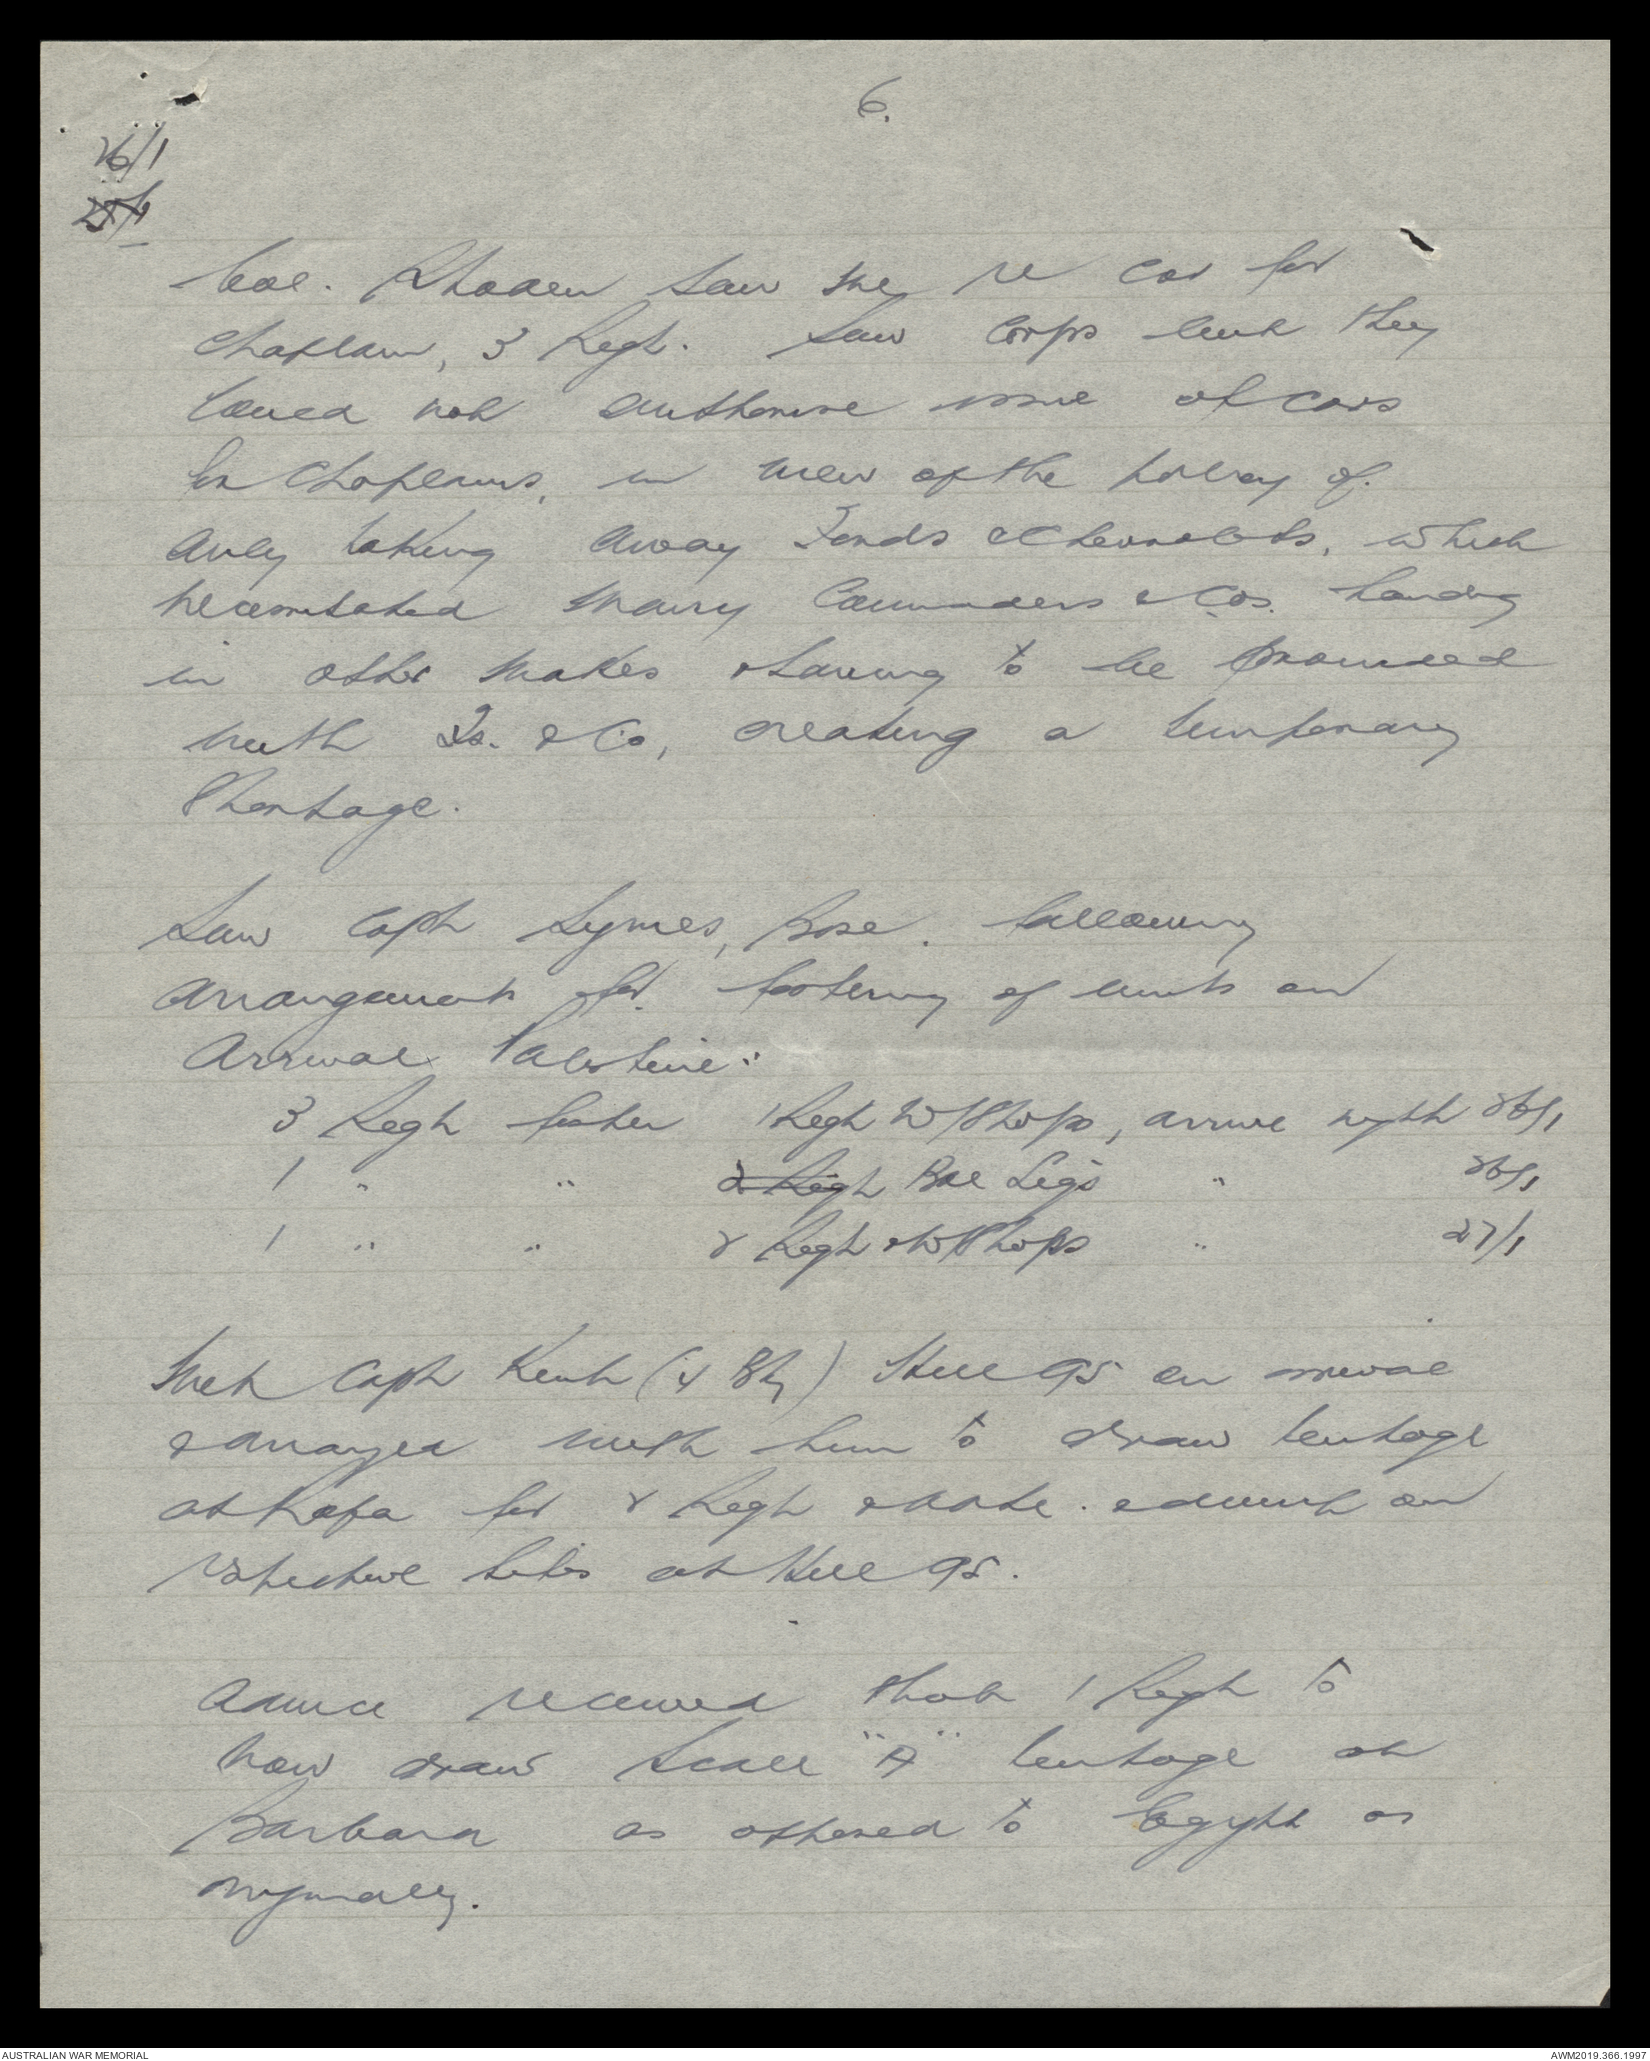 6.
26/1
Col. Rhoden saw me re car for
Chaplain, 3 Regt. Saw Corps but they
could not authorise issue of cars
for Chaplains, in view of the policy of
only taking away Fords & Chevrolets, which
necessitated many Commanders & COs. handing
in other makes & having to be provided
with Fs. & Cs, creating a temporary
shortage.
Saw Capt Symes, Base. Following
arrangements for fostering of units on
arrival Palestine:-
3 Regt foster 1 Regt W/Shops, arrive night 26/1
1 " " 2 Regt Bde Sigs " 26/1
1 " " 2 Regt & W/Shops " 27/1
Met Capt Kent (4 Bty) Hill 95 on arrival
& arranged with him to draw tentage
at Rafa for 2 Regt & have it on
respective sites at Hill 95.
Advice received that 1 Regt to
now draw Scale "A" tentage at
Barbara as opposed to Egypt as
originally.
AUSTRALIAN WAR MEMORIAL
AWM2019.366.1997